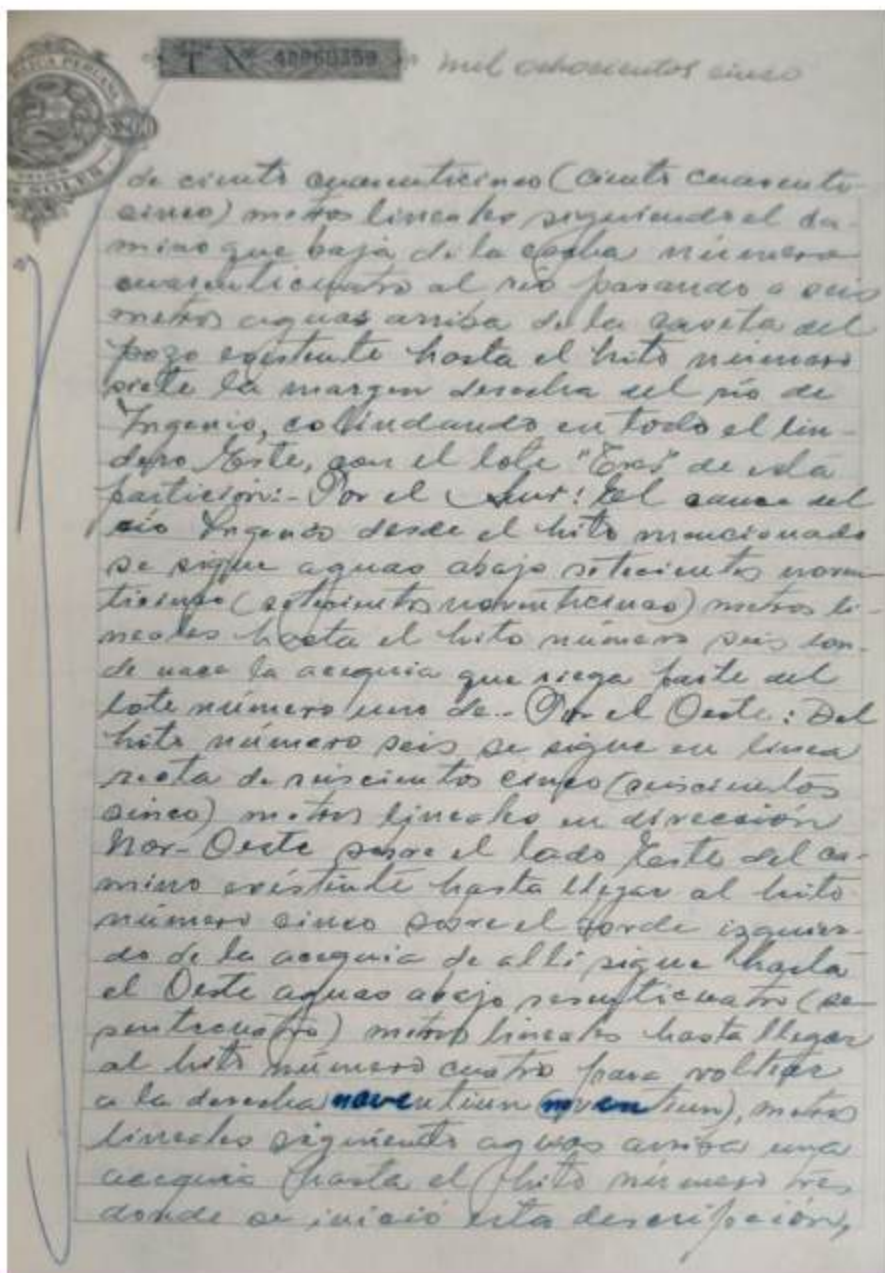 T Nº 40960359 mil ochocientos cinco
de ciento cuarenticinco (ciento cuarenti-
cinco) metros lineales siguiendo el ca-
mino que baja de la cocha número
cuarenticuatro al río pasando a seis
metros aguas arriba de la caseta del
pozo existente hasta el hito número
siete la margen derecha del río de
Ingenio, colindando en todo el lin-
dero Este, con el lote "Tres" de esta
partición:- Por el Sur: Del cauce del
río Ingenio desde el hito mencionado
se sigue aguas abajo setecientos noven
ticinco (setecientos noventicinco) metros li-
neales hasta el hito número seis don-
de nace la acequia que riega parte del
lote número uno de.- Por el Oeste: Del
hito número seis se sigue en linea
recta de seiscientos cinco (seiscientos
cinco) metros lineales en dirección
Nor-Oeste sobre el lado Este del ca-
mino existente hasta llegar al hito
número cinco sobre el borde izquier-
do de la acequia de alli sigue hacia
el Oeste aguas abajo sesenticuatro (se-
senticuatro) metros lineales hasta llegar
al hito número cuatro para voltear
a la derecha noventiun (noventiun), metros
lineales siguiente aguas arriba una
acequia hasta el hito número tres
donde se inició esta descripción,